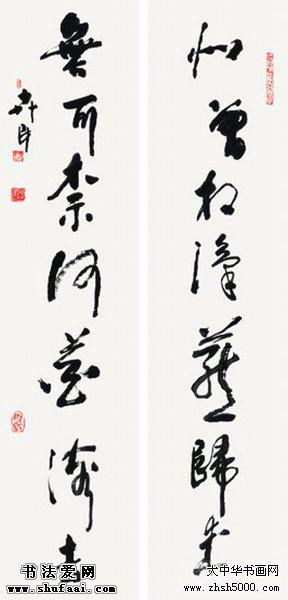 似曾相識燕歸来
無可奈何花落去
书法爱网
www.shufaai.com
大中华书画网
www.zhsh5000.com